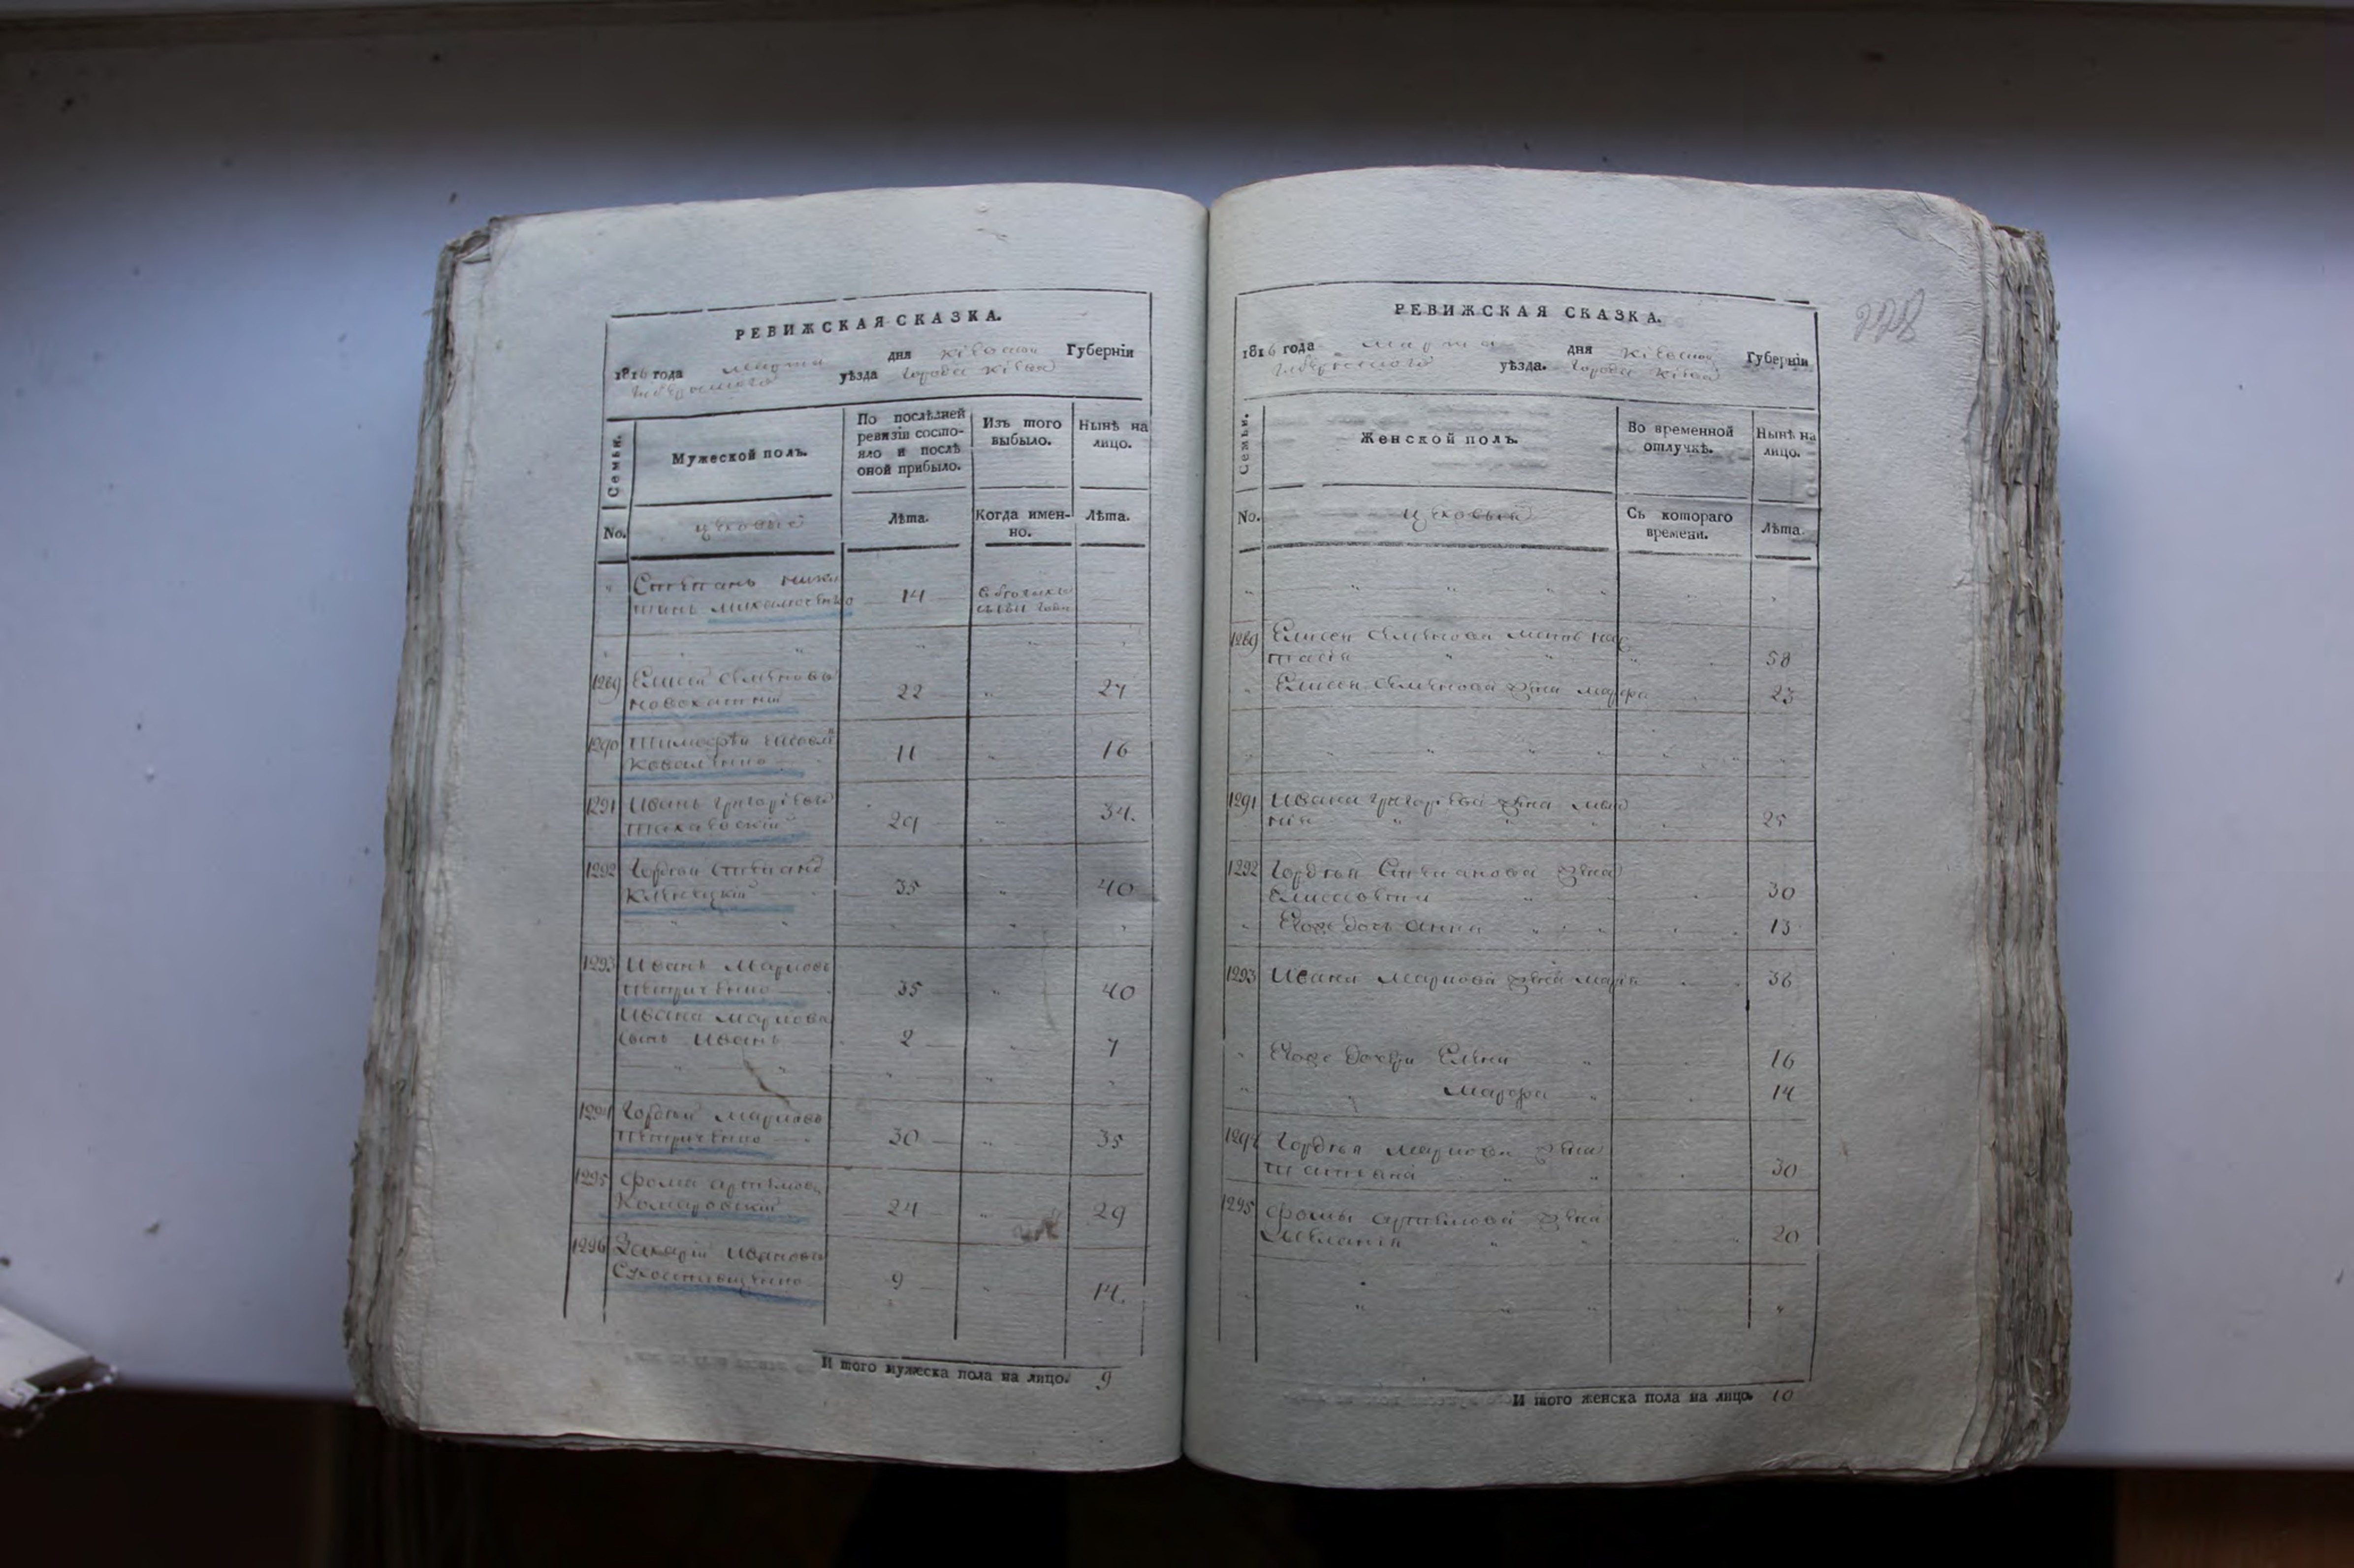 РЕВИЖСКАЯ СКАЗКА.
1816 года марта дня Кіевской Губерніи
уѣзда Города Кіева
Семьи.
Мужеской полъ.
По послѣдней
ревизіи состо-
яло и послѣ
оной прибыло.
Изъ того
выбыло.
Нынѣ на
лицо.
No.
цеховые
Лѣта.
Когда имен-
но.
Лѣта.
Степанъ Ники
тинъ 14
1289 Елисей Семеновъ
22 27
1290 Тимофей
Коваленко 11 16
1291 Иванъ Григорьевъ
29 34.
1292 Гордѣй Степановъ
35 40
1293 Иванъ Марковъ
Петриченко 35 40
Ивана Маркова
сынъ Иванъ 2 7
1294 Гордѣй Марковъ
Петриченко 30 35
1295 Фома Артемовъ
Комаровскій 24 29
1296 Захарій Ивановъ
9 14.
И того мужеска пола на лицо. 9
228
РЕВИЖСКАЯ СКАЗКА.
1816 года марта дня Кіевской Губерніи
уѣзда. Города Кіева
Семьи.
Женской полъ.
Во временной
отлучкѣ.
Нынѣ на
лицо.
No.
цеховые
Съ котораго
времени.
Лѣта.
1289 Елисея Семенова мать Нас
тасія 58
Елисея Семенова жена Мавра 23
1291 Ивана Григорьева жена
25
1292 Гордѣя Степанова жена
30
Его же дочь Анна 13
1293 Ивана Маркова жена Марья 38
Его же дочери Елена 16
Мавра 14
1294 Гордѣя Маркова жена
Татьяна 30
1295 Фомы Артемова жена
20
И того женска пола на лицо. 10